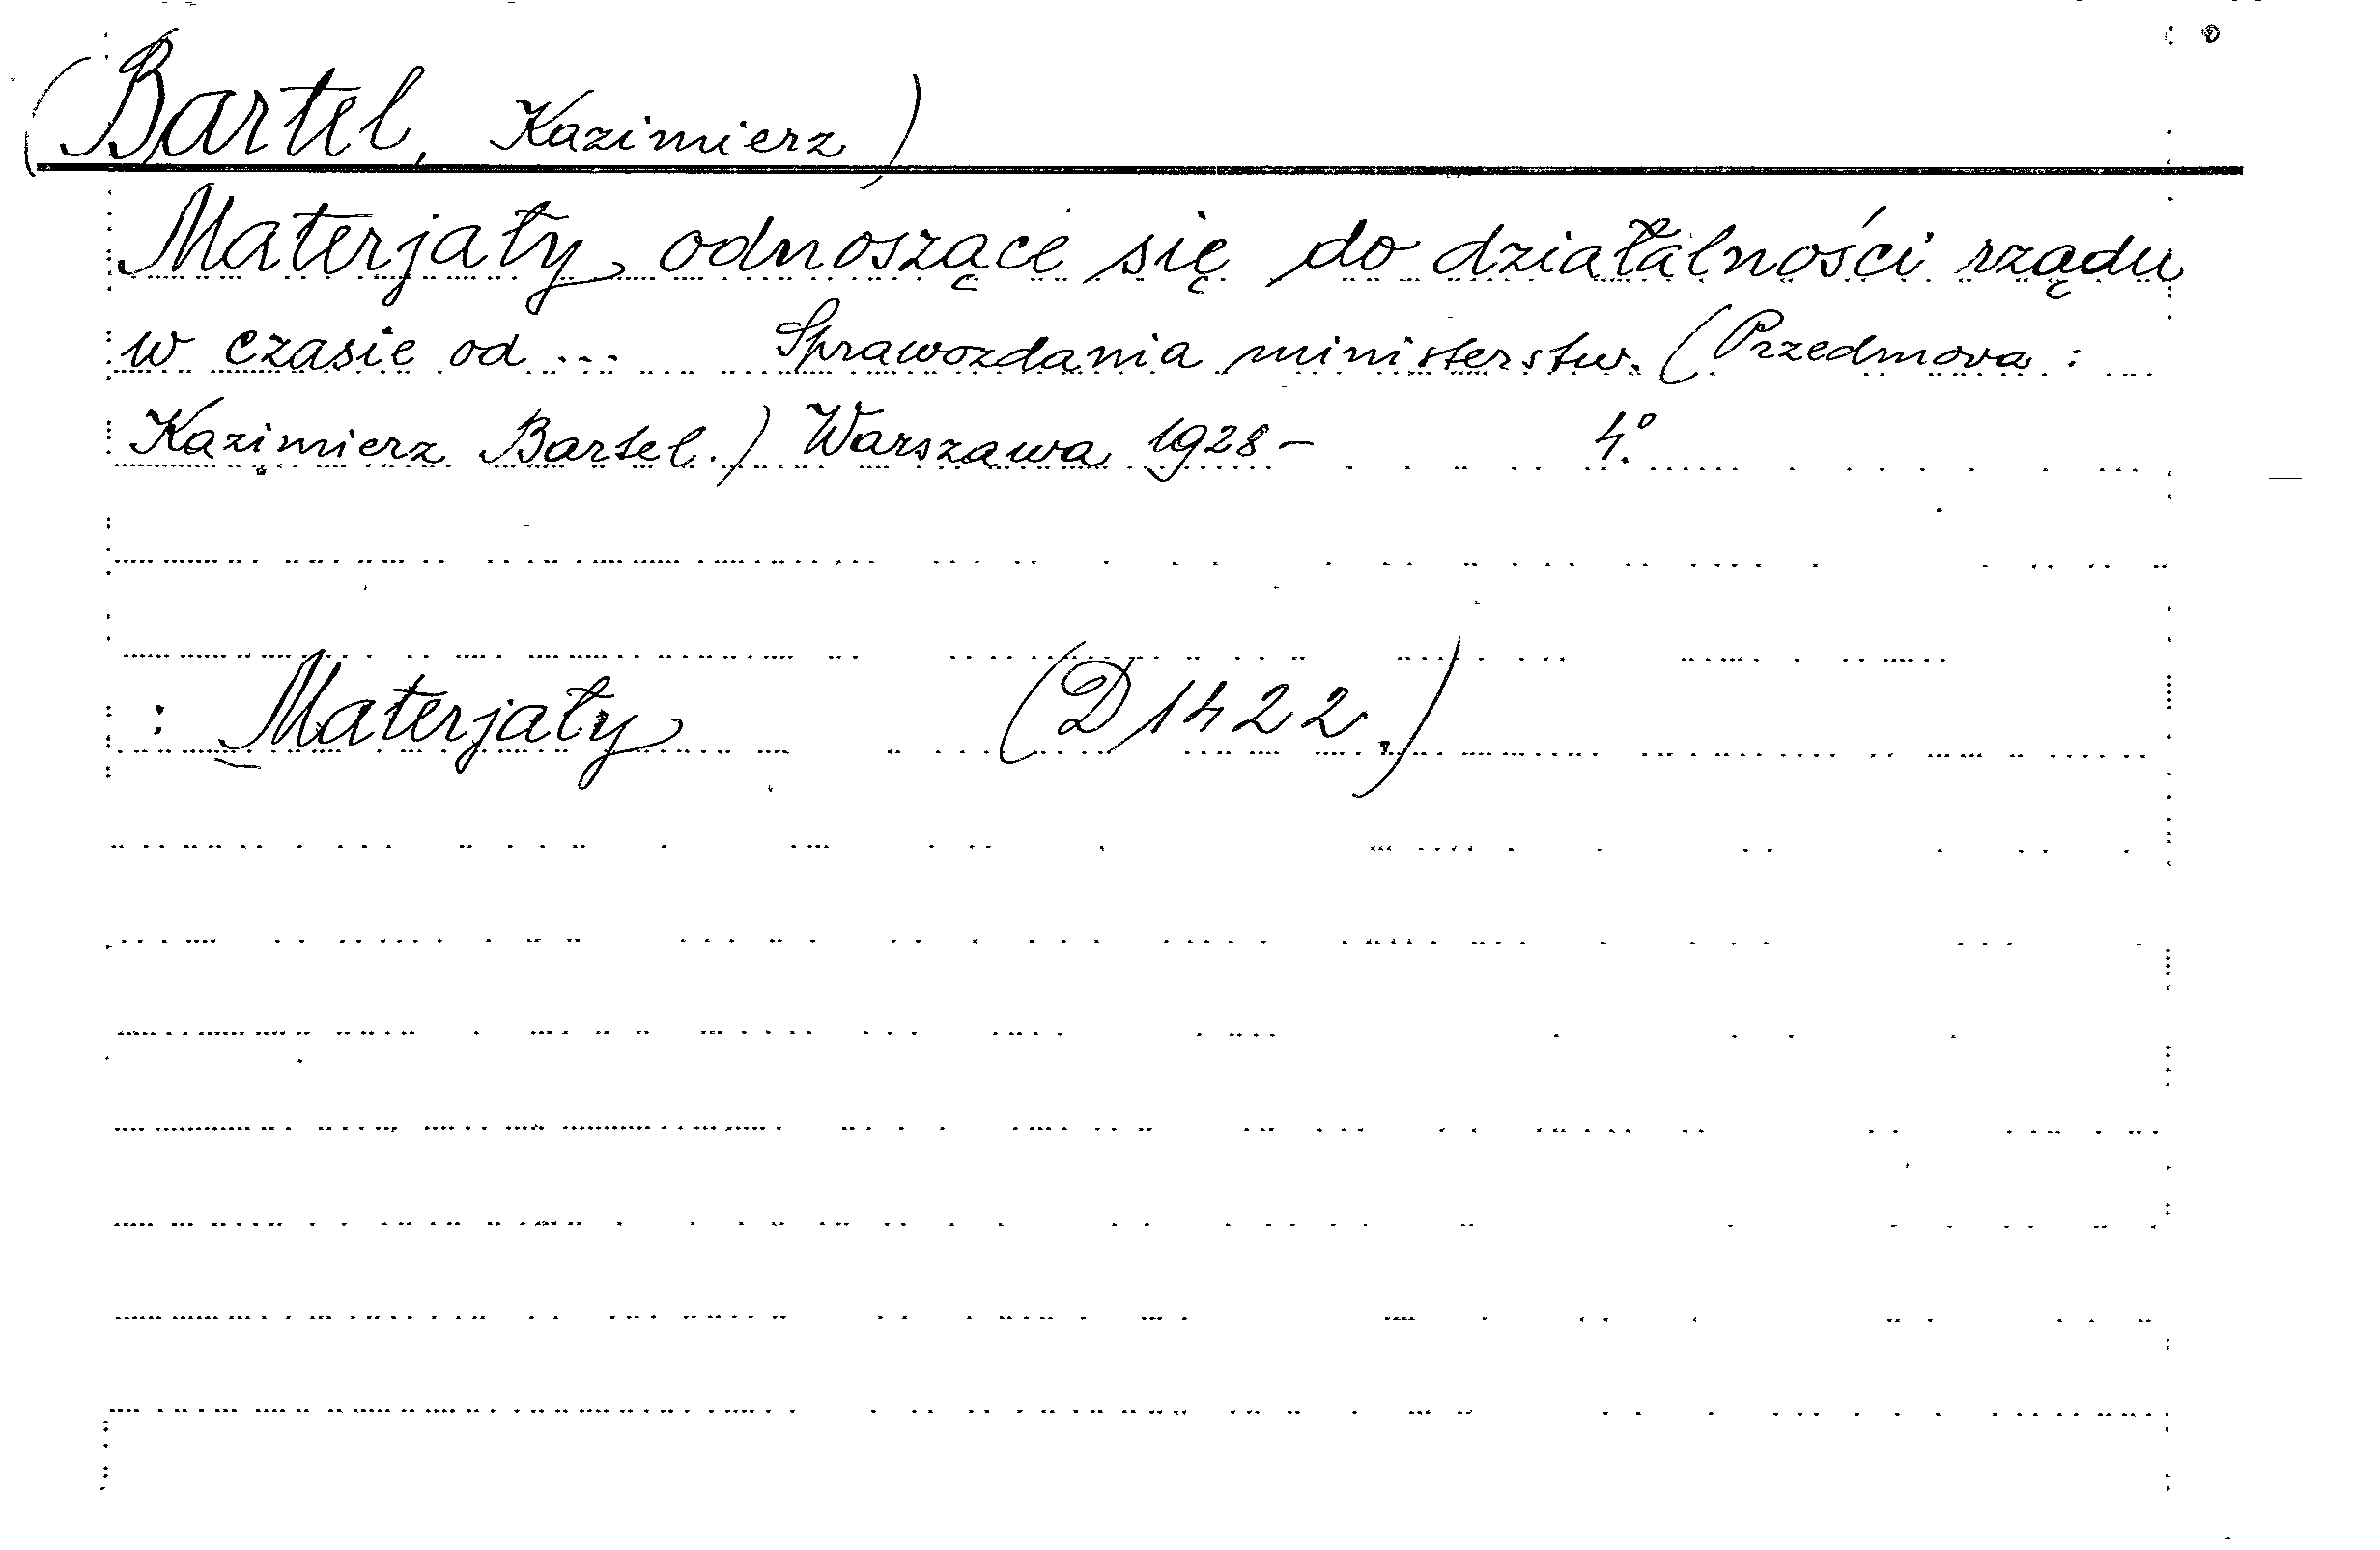 (Bartel, Kazimierz)
Materjały odnoszące się do działalności rządu
w czasie od ... Sprawozdania ministerstw. (Przedmova :
Kazimierz Bartel.) Warszawa 1928 – 4º.
: Materjały (D 1422.)